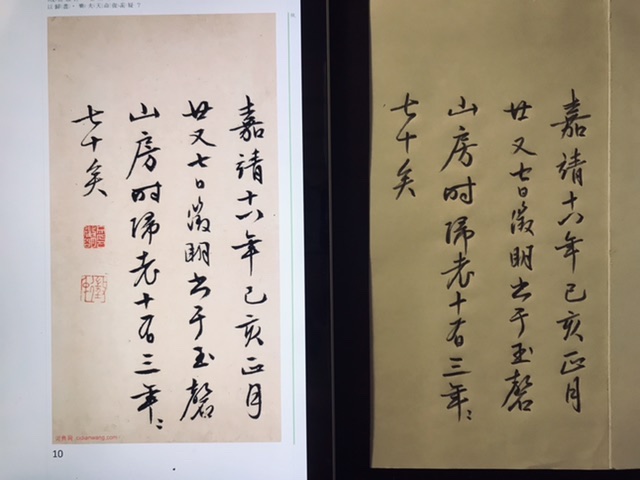 嘉靖十八年己亥正月
廿又七日徵明书于玉磬
山房时归老十有三年年
七十矣
10
嘉靖十八年己亥正月
廿又七日徵明书于玉磬
山房时归老十有三年年
七十矣